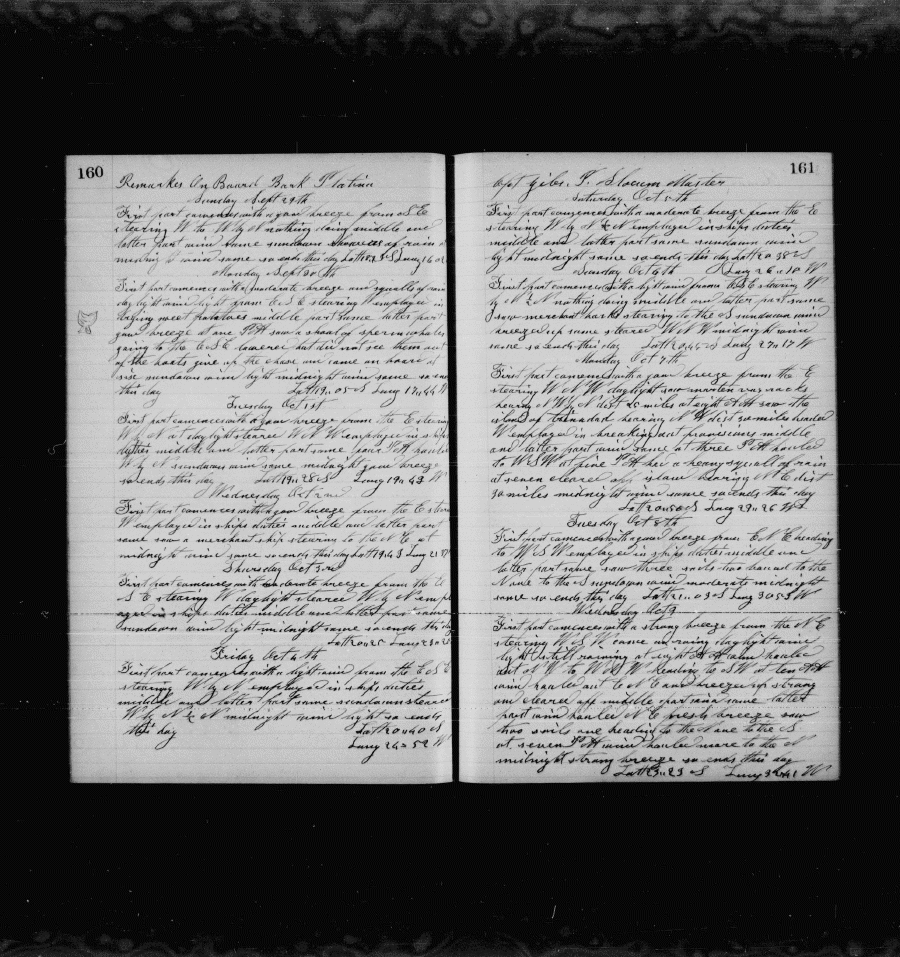 160
Remarkes On Board Bark Platina
Sunday Sept 29th
First part comences with a good breeze from S E
stearing W to W by N nothing doing middle and
latter part wind same sundown showers of rain
midnight wind same so ends this day Latt S Long 16
Monday Sept 30th
First part comences with a moderate breeze and squalls of
day light wind light from E S E stearing W employed in
meet potatoes middle part same latter part
good breeze at one P M saw a shoal of spermwhales
going to the E S E lowered but did not see them
of the boats give up the chase and came on board at
six sundown wind light midnight wind same so ends
this day Latt 19 05 S Long 17 44 W
Tuesday Oct 1st
First part comences with a good breeze from the E stearing
W by N at day light steared W N W employed in ships
duties middle and latter part same P M hauled
W by N sundown wind same midnight good breeze
so ends this day Latt 19 28 S Long 19 43 W
Wednesday Oct 2nd
First part comences with a good breeze from the E
W employed in ships duties middle and latter part
same saw a merchant ship stearing to the N E at
midnight wind same so ends this day Latt 19 43 Long 21
Thursday Oct 3rd
First part comences with moderate breeze from the E
S E stearing W day light steared W by N
in ships duties middle and latter part same
sundown wind light midnight same so ends this day
Latt 20 25 Long 23
Friday Oct 4th
First part comences with a light wind from the E S E
stearing W by N employed in ships duties
middle and latter part same sundown steared
W by N ½ N midnight wind light so ends
this day Latt 20 40 S
Long 24 52 W
161
Capt Gibs. T. Slocum Master
Saturday Oct 5th
First part comences with a moderate breeze from the E
stearing W by N ½ N employed in ships duties
middle and latter part same sundown wind
light midnight same so ends this day Latt 20 38 S
Sunday Oct 6th Long 26 10 W
First part comences with a light wind from E S E stearing W
by N ½ N nothing doing middle and latter part same
saw merchant bark stearing to the S sundown wind
breezed up some steared W N W midnight wind
same so ends this day Latt 20 45 S Long 27 17 W
Monday Oct 7th
First part comences with a good breeze from the E
stearing W N W day light saw marten vas rocks
bearing N W by N dist 25 miles at eight A M saw the
island of trinadad bearing N W dist 30 miles hauled
W employed in breaking out provisions middle
and latter part wind same at three P M hauled
to W S W at five P M had a heavy squall of rain
at seven cleared off bearing N E dist
30 miles midnight wind same so ends this day
Latt 20 50 S Long 29 26 W
Tuesday Oct 8th
First part comences with a good breeze from E N E heading
to W S W employed in ships duties middle and
latter part same saw three sails two bound to the
N one to the S sundown wind moderate midnight
same so ends this day Latt 21 03 S Long 30 53 W
Wednesday Oct 9
First part comences with a strong breeze from the N E
stearing W S W came on raining day light wind
light still raining at eight A M wind hauled
out of N to W S W heading to S W at ten A M
wind hauled out E N E and breezed up strong
and cleared off middle part wind same latter
part wind hauled N E fresh breeze saw
two sails one heading to the N one to the S
at seven P M wind hauled more to the N
midnight strong breeze so ends this day
Latt 23 23 S Long 32 41 W